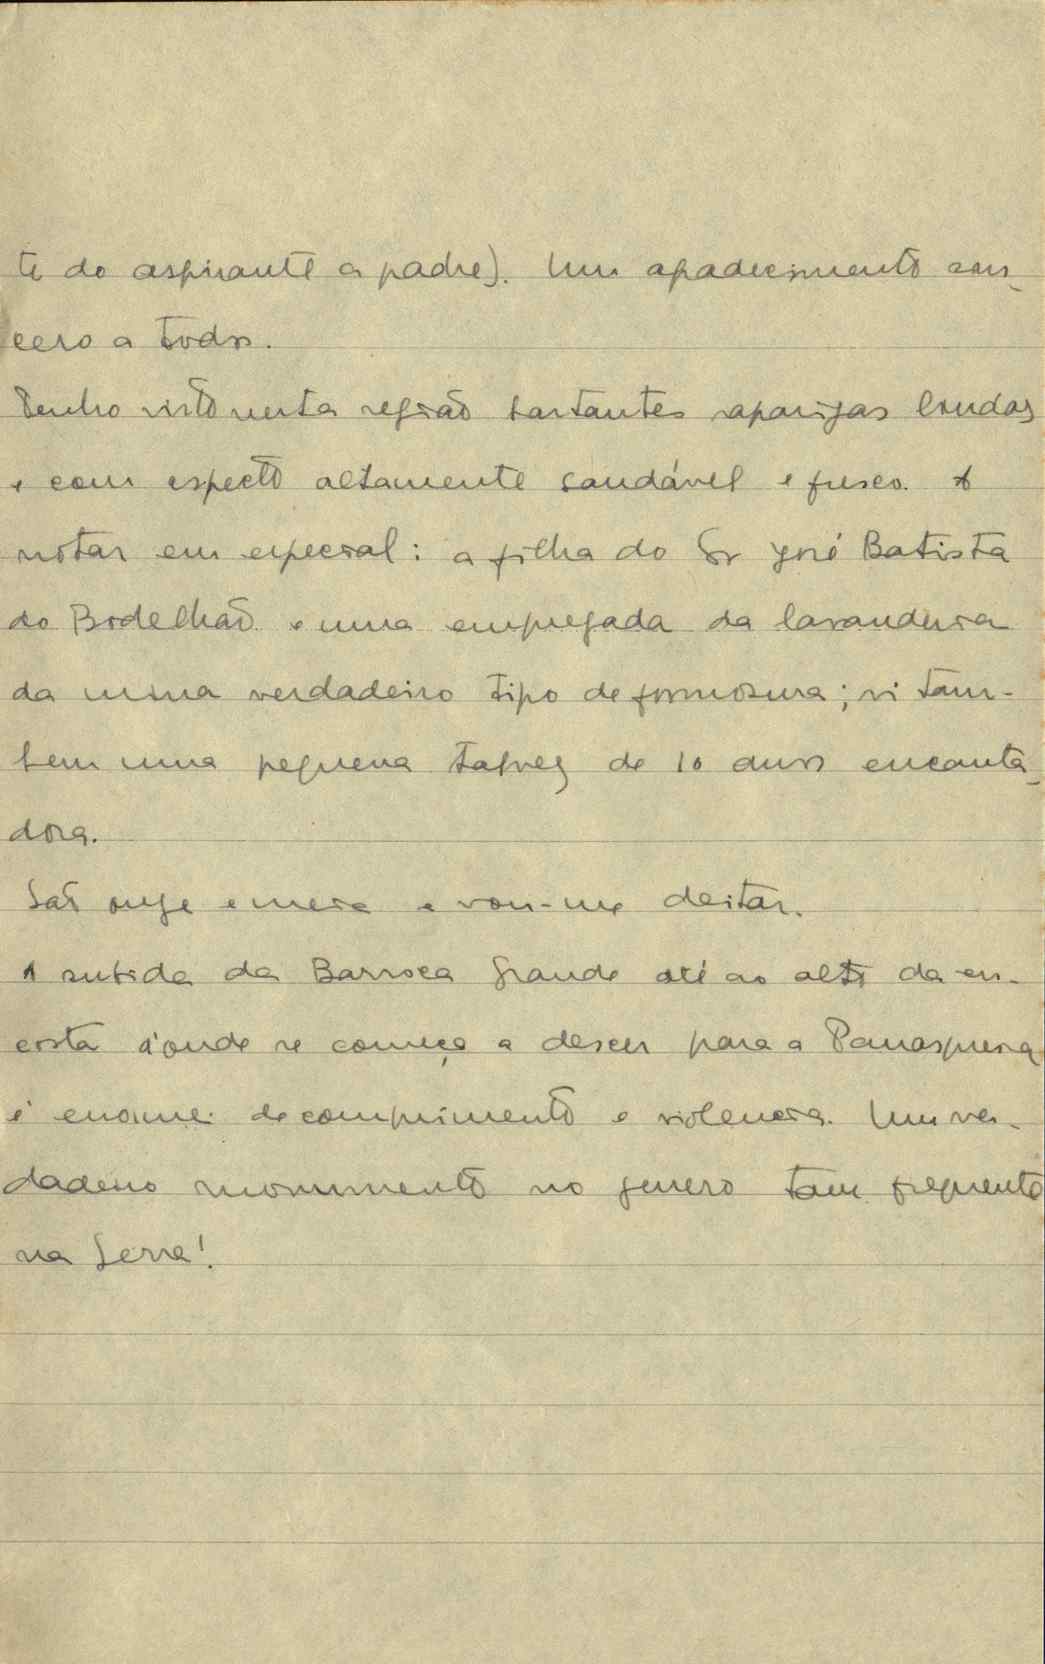 te do aspirante a padre). Um agradecimento sin-
cero a todos.
Tenho visto nesta região bastantes raparigas lindas
e com aspecto altamente saudável e fresco. A
notar em especial: a filha do Sr José Batista
do Bodelhão e uma empregada da lavanderia
da mina verdadeiro tipo de formosura; vi tam-
bem uma pequena talvez de 10 anos encanta-
dora.
São onze e meia e vou-me deitar.
A subida da Barroca Grande até ao alto da en-
costa d'onde se começa a descer para a Panasqueira
é enorme de comprimento e violencia. Um ver-
dadeiro monumento no genero tam frequente
na Serra!